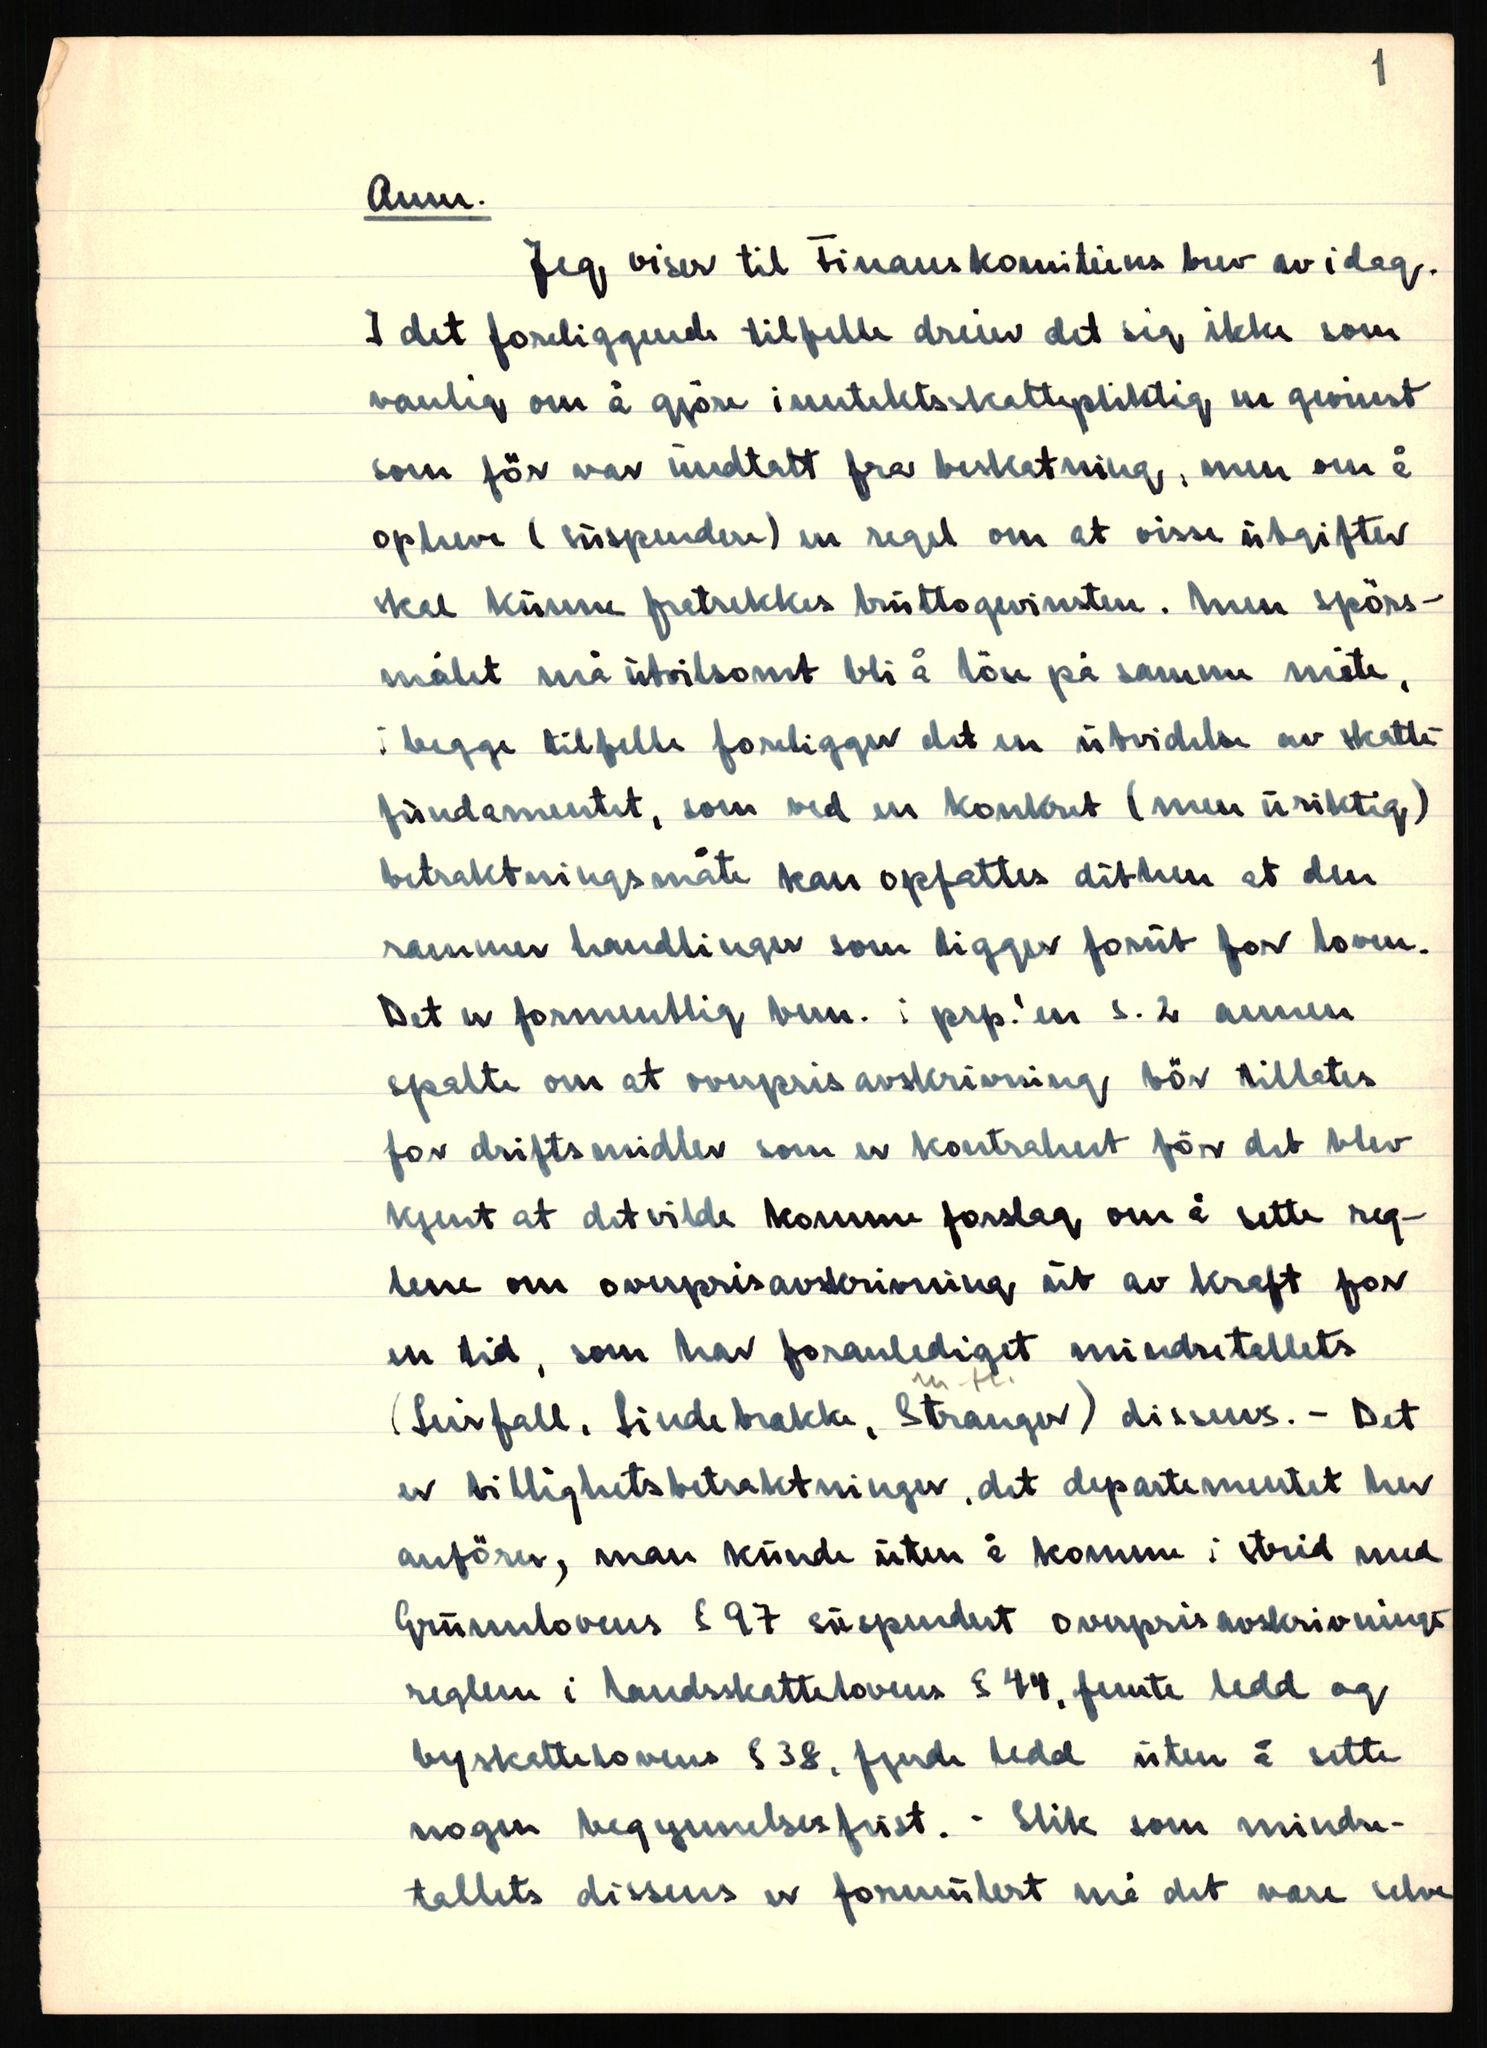 1
Anm.
Jeg viser til Finanskomitéens brev av idag.
I det foreliggende tilfelle dreier det sig ikke som
vanlig om å gjöre inntektsskattepliktig en gevinst
som för var undtatt fra beskatning, men om å
opheve (suspendere) en regel om at visse utgifter
skal kunne fratrekkes bruttogevinsten. Men spörs-
målet må utvilsomt bli å löse på samme måte,
i begge tilfelle foreligger det en utvidelse av skatte-
fundamentet, som ved en konkret (men uriktig)
betraktningsmåte kan opfattes dithen at den
rammer handlinger som ligger forut for loven.
Det er formentlig bem. i prp.'en s. 2 annen
spalte om at overprisavskrivning bör tillates
for driftsmidler som er kontrahert för det blev
kjent at det vilde komme forslag om å sette reg-
lene om overprisavskrivning ut av kraft for
en tid, som har foranlediget mindretallets
(Leirfall, Lindebrække, Stranger) dissens. - Det
er billighetsbetraktninger, det departementet her
anförer, man kunde uten å komme i strid med
Grunnlovens § 97 suspendert overprisavskrivnings-
reglene i landsskattelovens § 44, femte ledd og
byskattelovens § 38, fjerde ledd uten å sette
nogen begynnelsesfrist. - Slik som mindre-
tallets dissens er formulert må det være selve